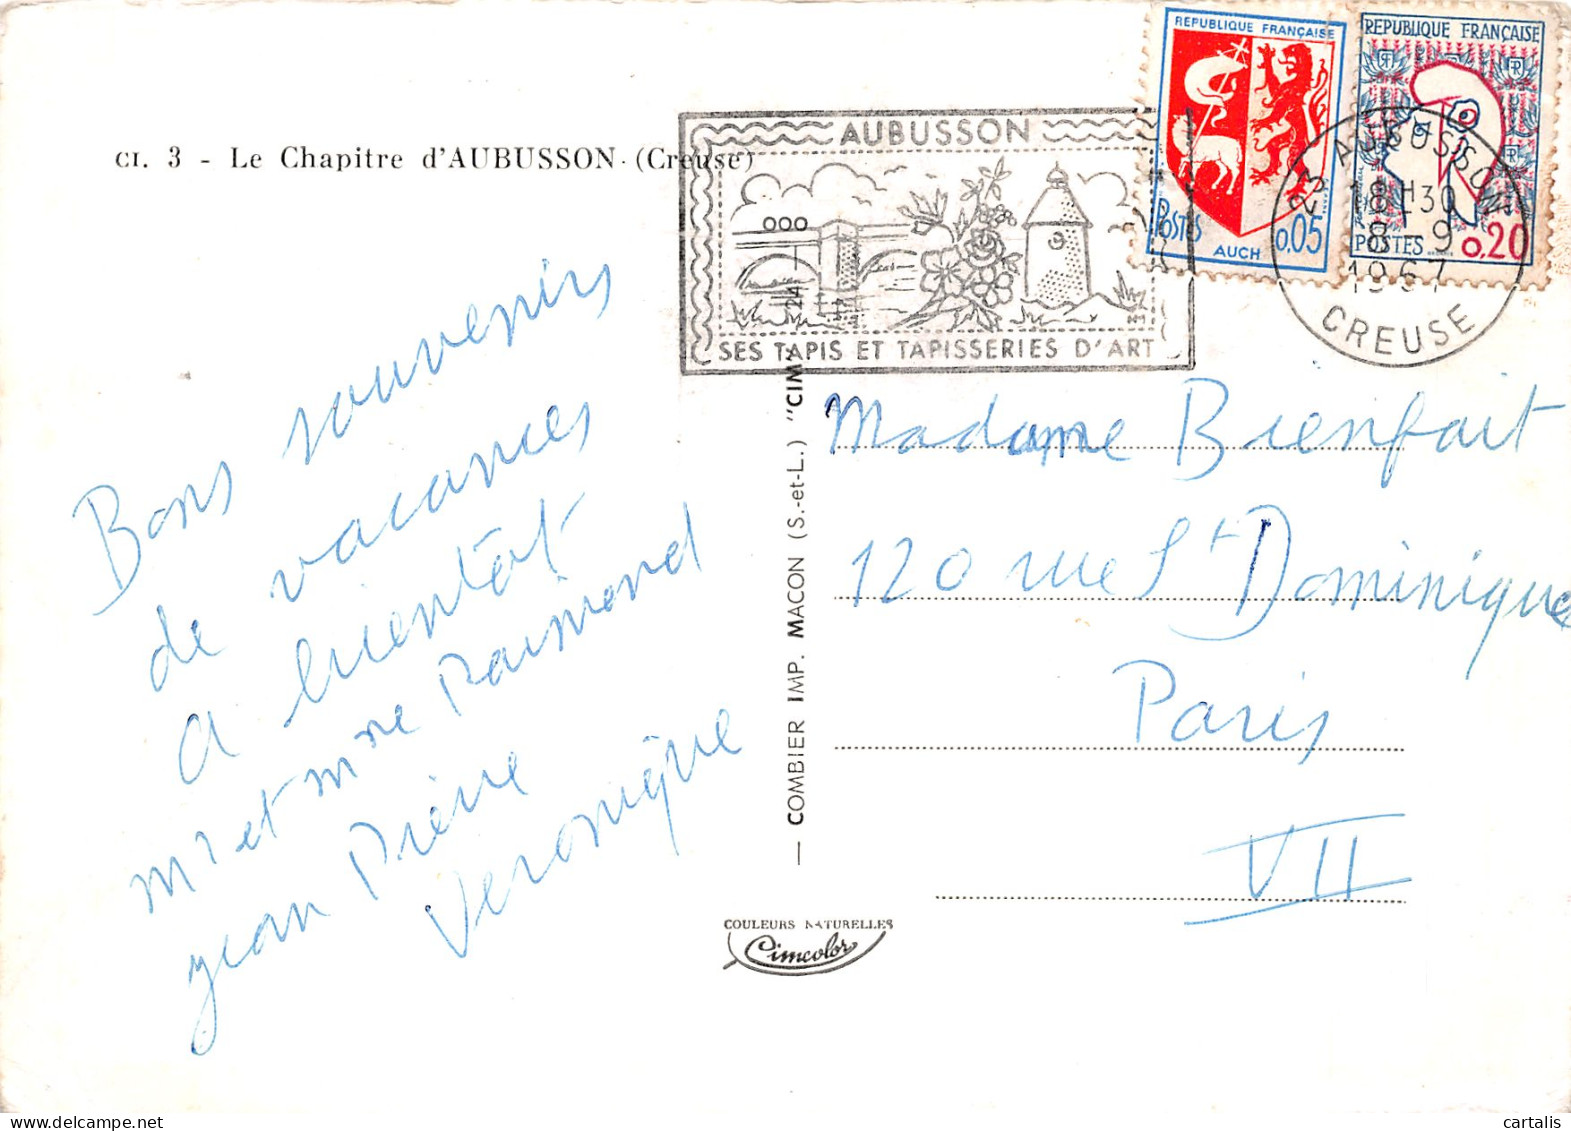 CI. 3 - Le Chapitre d'AUBUSSON (Creuse)
AUBUSSON
SES TAPIS ET TAPISSERIES D'ART
REPUBLIQUE FRANÇAISE
POSTES
AUCH
0.05
REPUBLIQUE FRANÇAISE
POSTES 0.20
23 AUBUSSON
18H30
8-9
1967
CREUSE
Bons souvenirs
de vacances
a bientôt
mr et mme Raimond
jean Pierre
Veronique
— COMBIER IMP. MACON (S.-et-L.) "CIM"
Madame Bienfait
120 rue St Dominique
Paris
VII
COULEURS NATURELLES
Cimcolor
www.delcampe.net
cartalis